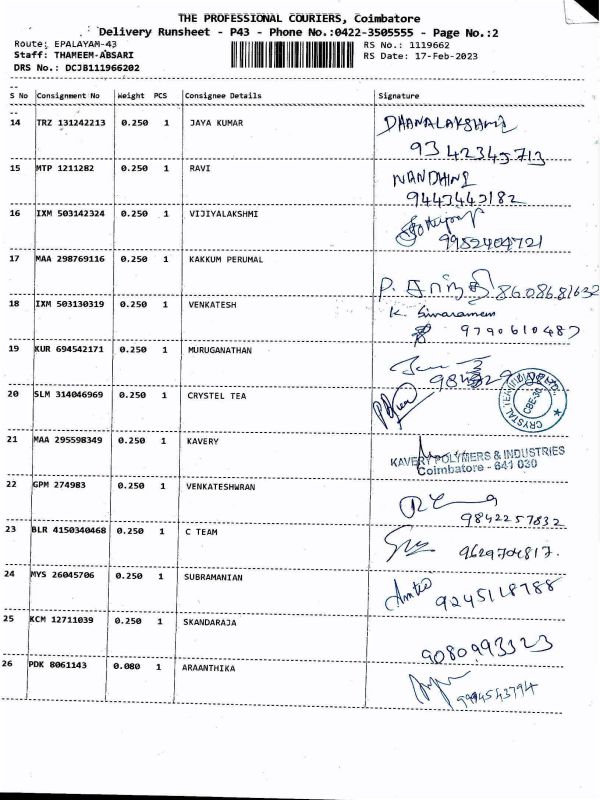 THE PROFESSIONAL COURIERS, Coimbatore
Delivery Runsheet - P43 - Phone No.:0422-3505555 - Page No.:2
Route: EPALAYAM-43 RS No.: 1119662
Staff: THAMEEM-ABSARI RS Date: 17-Feb-2023
DRS No.: DCJB111966202
S No Consignment No Weight PCS Consignee Details Signature
14 TRZ 131242213 0.250 1 JAYA KUMAR DHANALAKSHMI
9342345713
15 MTP 1211282 0.250 1 RAVI NANDHINI
9443443182
16 IXM 503142324 0.250 1 VIJIYALAKSHMI
9952404721
17 MAA 298769116 0.250 1 KAKKUM PERUMAL
8608681632
18 IXM 503130319 0.250 1 VENKATESH K. Sivaramen
9790610487
19 KUR 694542171 0.250 1 MURUGANATHAN
20 SLM 314046969 0.250 1 CRYSTEL TEA
CRYSTAL TEA CBE-30
21 MAA 295598349 0.250 1 KAVERY
KAVERY POLYMERS & INDUSTRIES
Coimbatore - 641 030
22 GPM 274983 0.250 1 VENKATESHWRAN
9842257832
23 BLR 4150340468 0.250 1 C TEAM
9629704817.
24 MYS 26045706 0.250 1 SUBRAMANIAN
9245118788
25 KCM 12711039 0.250 1 SKANDARAJA
9080993323
26 PDK 8061143 0.080 1 ARAANTHIKA
9994543794